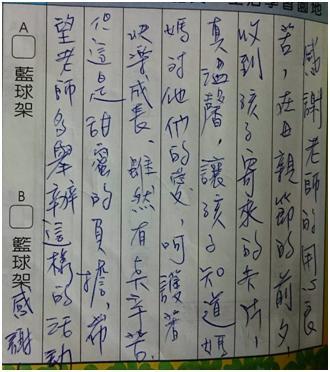 學習園地
感謝老師的用心良
苦,在母親節的前夕
收到孩子寄來的卡片,
真溫馨,讓孩子知道媽
媽對他們的愛,呵護著
快樂成長,雖然有点辛苦,
但這是甜蜜的負擔,希
望老師多舉辦這樣的活動
A 藍球架 B 籃球架 感謝